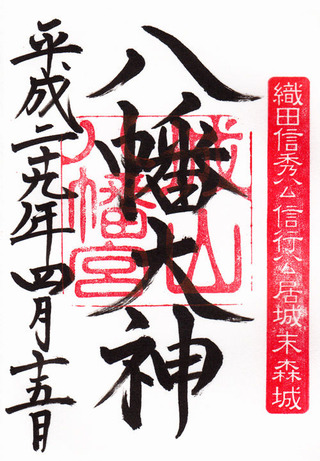 織田信秀公信行公居城末森城
八幡大神
城山八幡宮
平成二十九年四月十五日